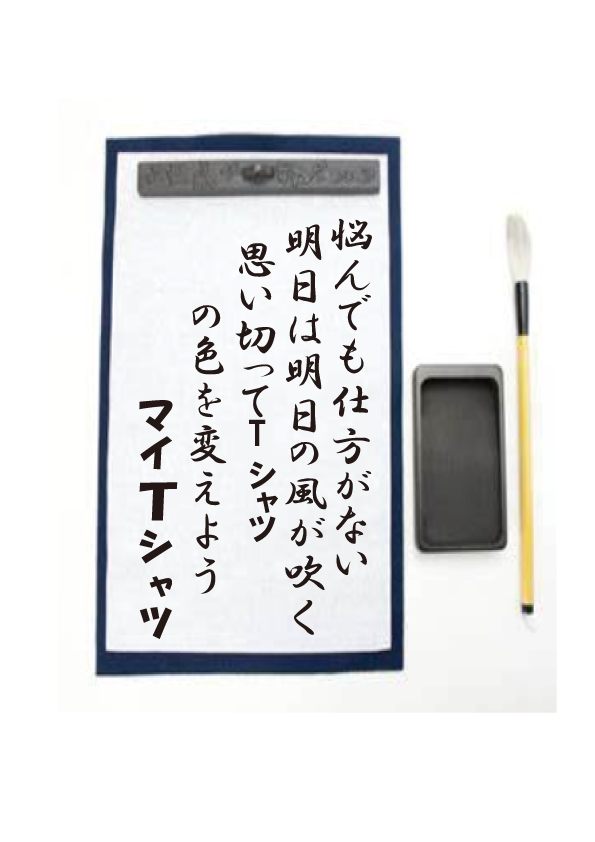 悩んでも仕方がない
明日は明日の風が吹く
思い切ってTシャツ
の色を変えよう
マイTシャツ